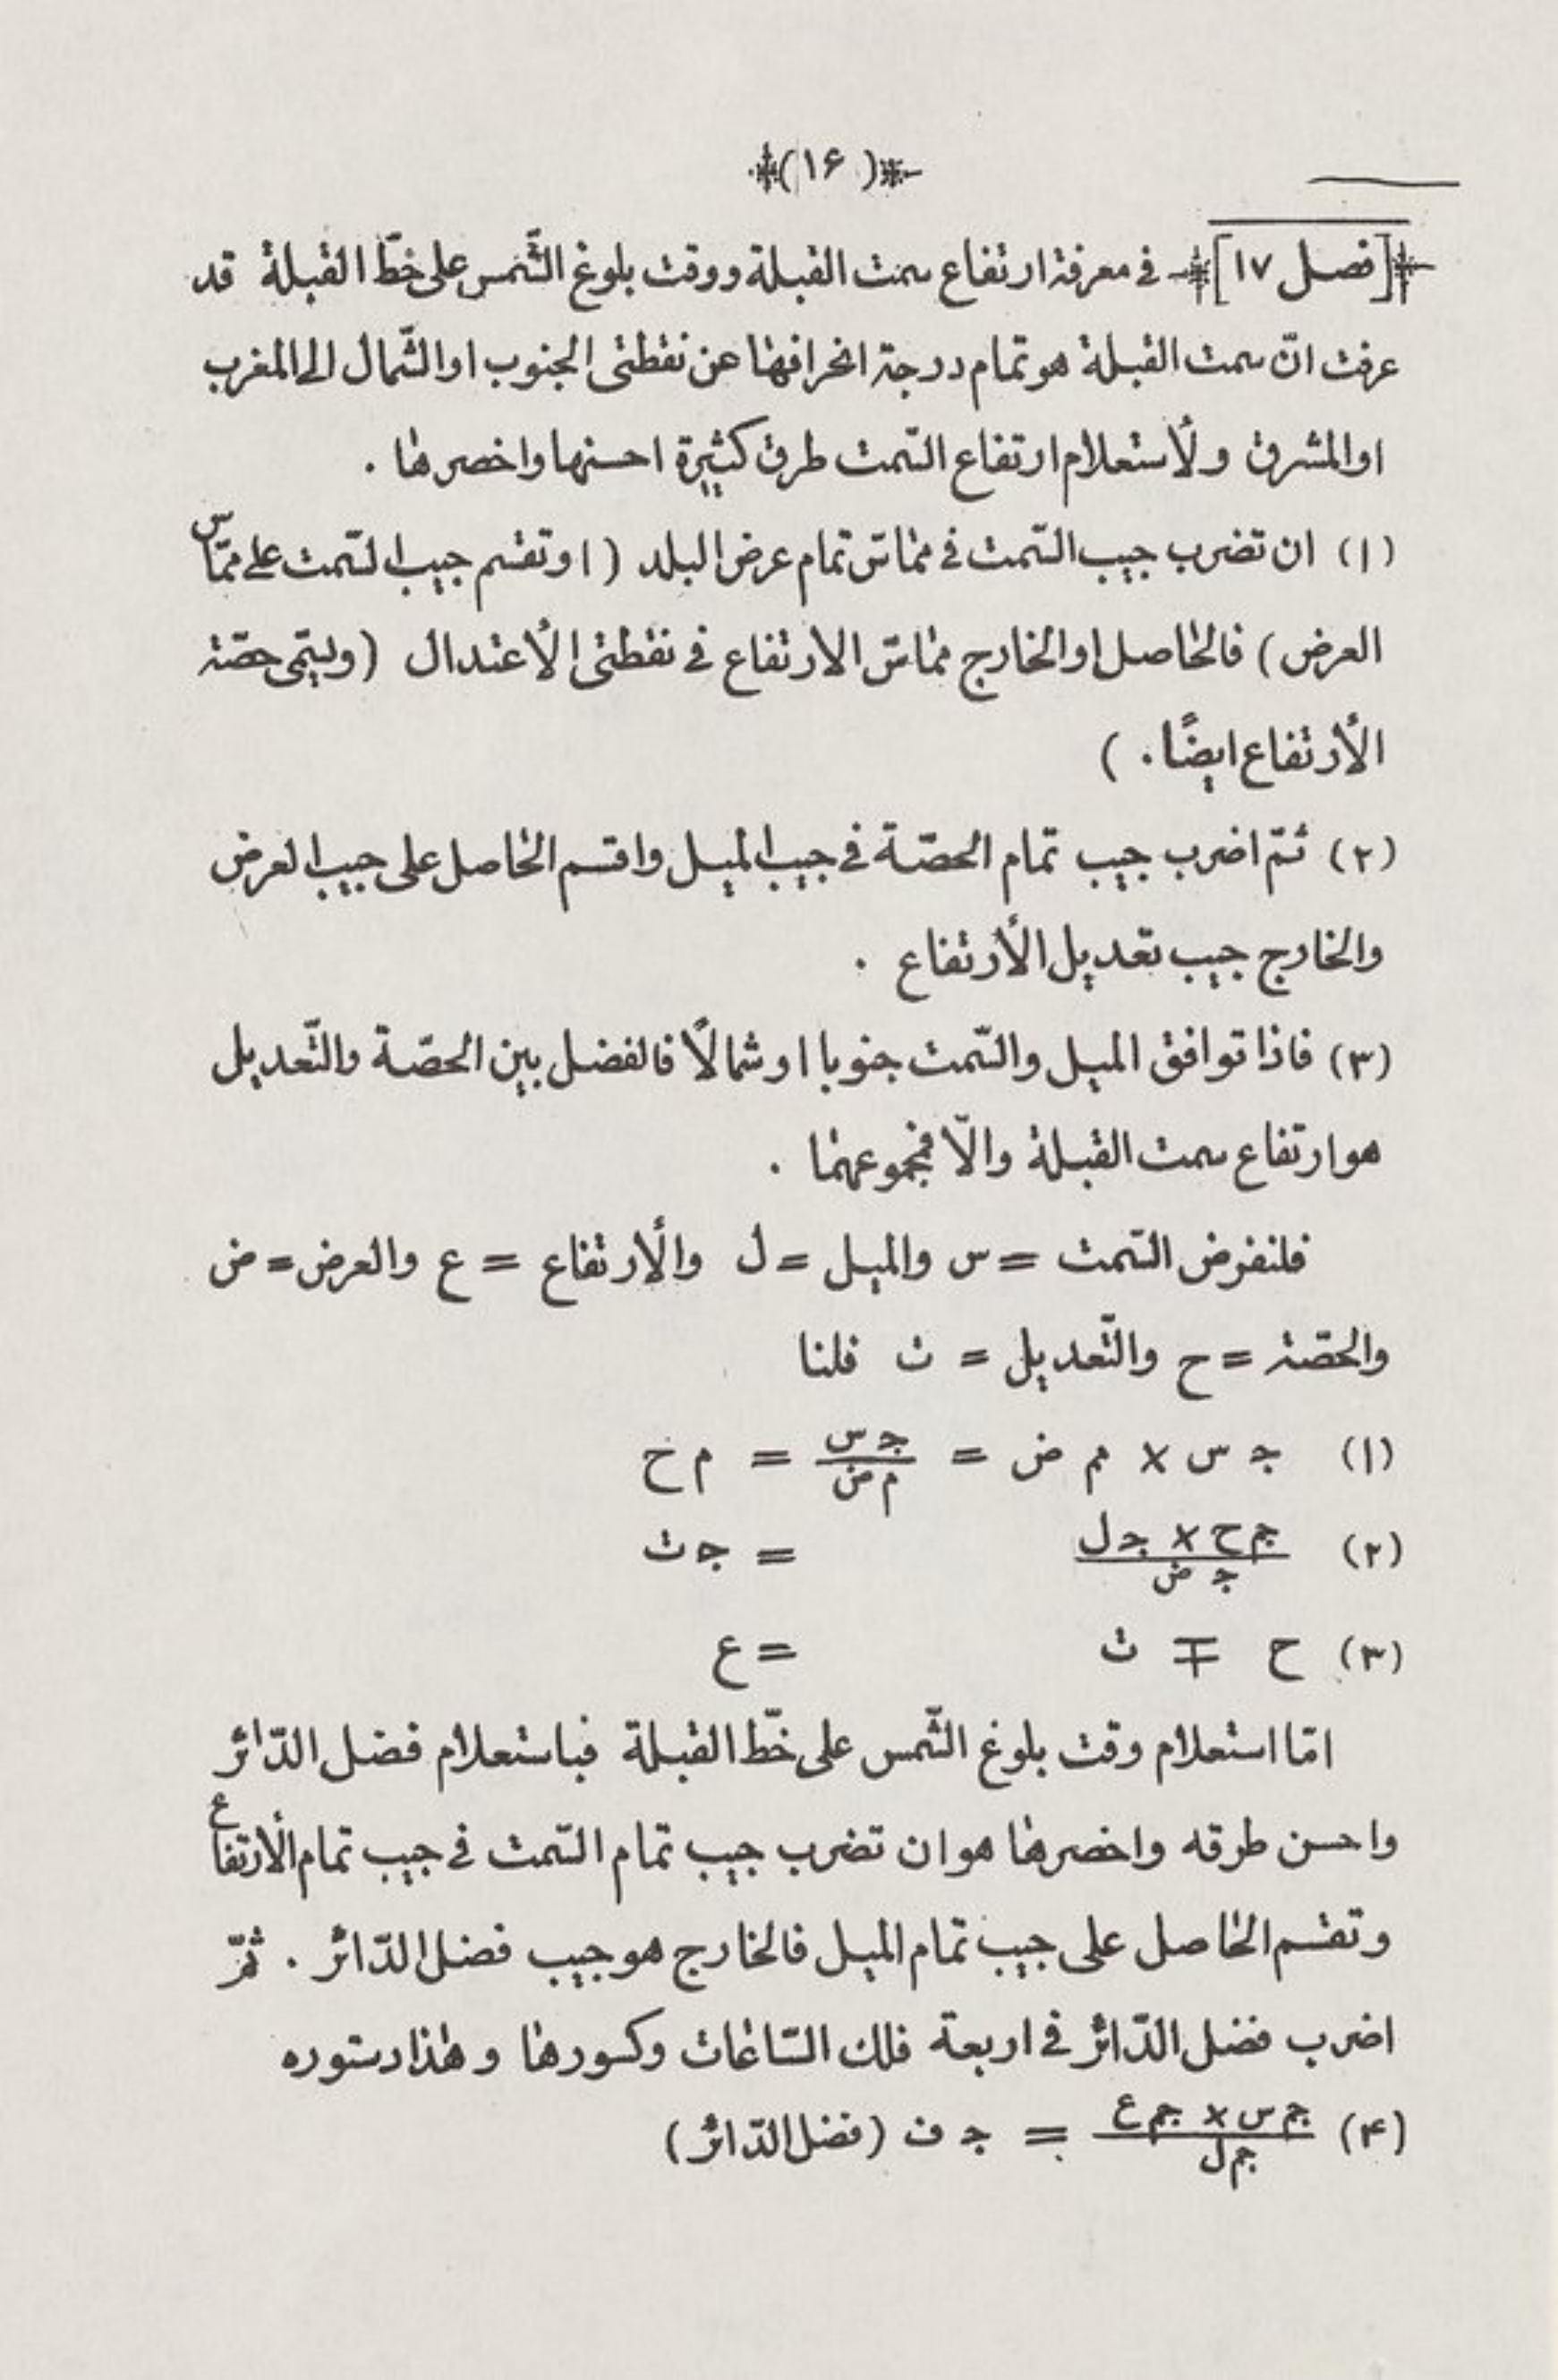 (۱۶)
[فصل ۱۷] في معرفة ارتفاع سمت القبلة ووقت بلوغ الشّمس على خطّ القبلة قد
عرفت انّ سمت القبلة هو تمام درجة انحرافها عن نقطتى الجنوب او الشّمال الى المغرب
او المشرق ولأستعلام ارتفاع السّمت طرق كثيرة احسنها واخصرها .
(۱) ان تضرب جيب السّمت في مماسّ تمام عرض البلد (او تقسم جيب السّمت على ممّاس
العرض) فالحاصل او الخارج مماسّ الارتفاع في نقطتى الأعتدال (ويسمّى حصّة
الأرتفاع ايضًا . )
(۲) ثمّ اضرب جيب تمام الحصّة في جيب الميل واقسم الحاصل على جيب العرض
والخارج جيب تعديل الأرتفاع .
(۳) فاذا توافق الميل والسّمت جنوبا او شمالًا فالفضل بين الحصّة والتّعديل
هو ارتفاع سمت القبلة والّا فمجموعهما .
فلنفرض السّمت = س والميل = ل والأرتفاع = ع والعرض = ض
والحصّة = ح والتّعديل = ت فلنا
(۱) جـ س × مم ض = جـ س / م ض = م ح
(۲) جم ح × جـ ل / جـ ض = جـ ت
(۳) ح ∓ ت = ع
امّا استعلام وقت بلوغ الشّمس على خطّ القبلة فباستعلام فضل الدّائر
واحسن طرقه واخصرها هو ان تضرب جيب تمام السّمت في جيب تمام الأرتفاع
وتقسم الحاصل على جيب تمام الميل فالخارج هو جيب فضل الدّائر . ثمّ
اضرب فضل الدّائر في اربعة فلك السّاعات وكسورها وهذا دستوره
(۴) جم س × جم ع / جم ل = جـ ف (فضل الدّائر)